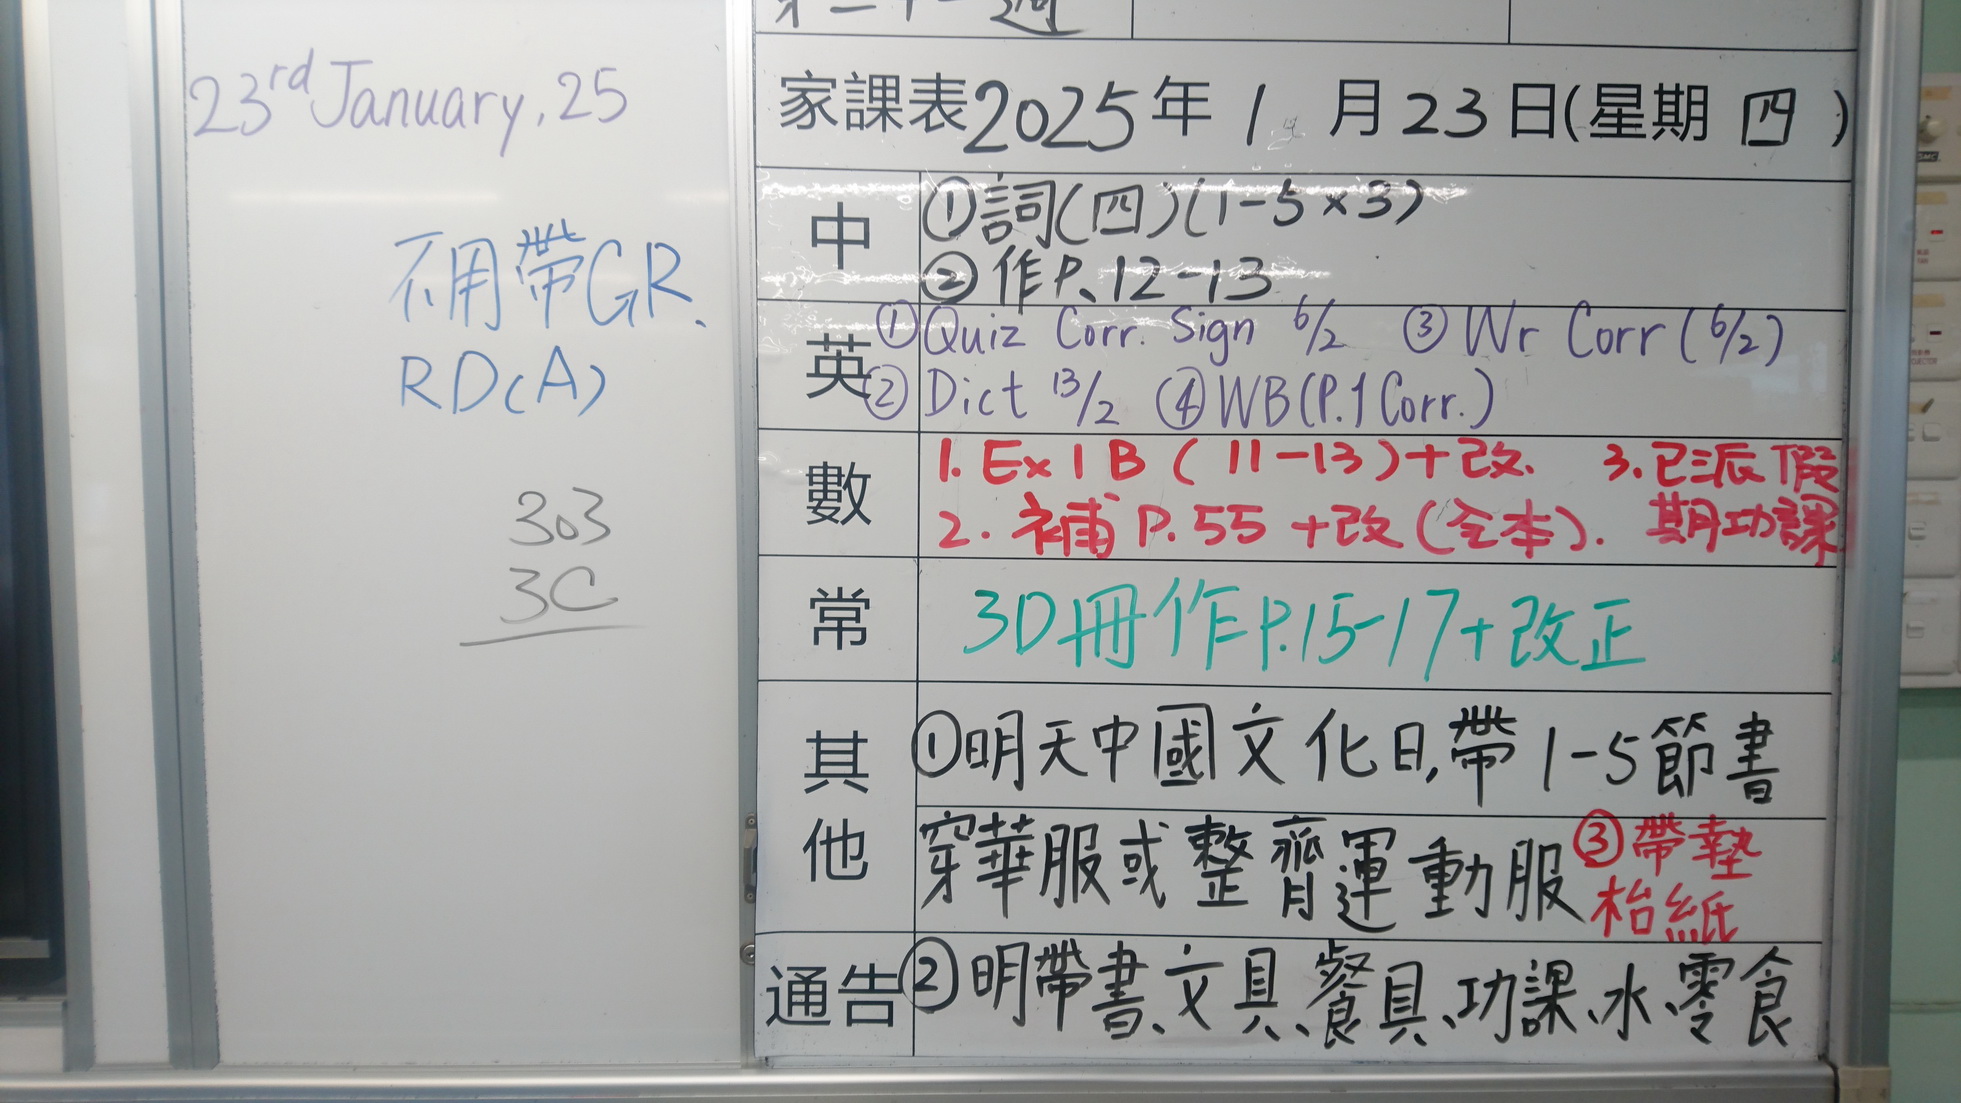 23rd January, 25
不用帶GR.
RD(A)
303
3C
家課表2025年1月23日(星期四)
中
①詞(四)(1-5×3)
②作P.12-13
英
①Quiz Corr. Sign 6/2 ③Wr Corr (6/2)
②Dict 13/2 ④WB(P.1 Corr.)
數
1. Ex 1B (11-13)+改. 3.已派假
2. 補P.55 +改(全本). 期功課
常
3D冊作P.15-17+改正
其他
①明天中國文化日,帶1-5節書
穿華服或整齊運動服 ③帶墊
枱紙
通告
②明帶書、文具、餐具、功課、水、零食